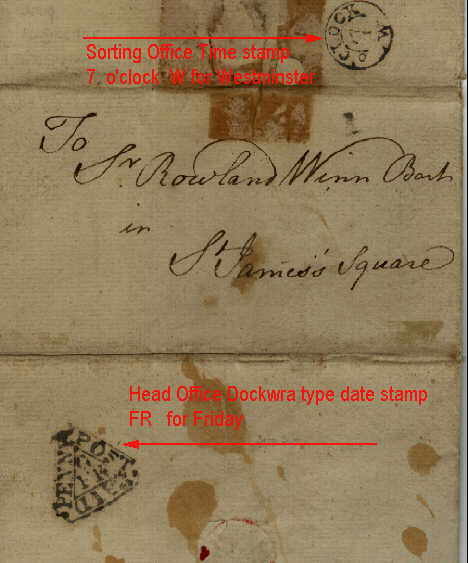 7 O'CLOCK W
Sorting Office Time stamp
7. o'clock W for Westminster
1
To
Sr. Rowland Winn Bart
in
St James's Square
Head Office Dockwra type date stamp
FR for Friday
PENNY POST PAID
FR